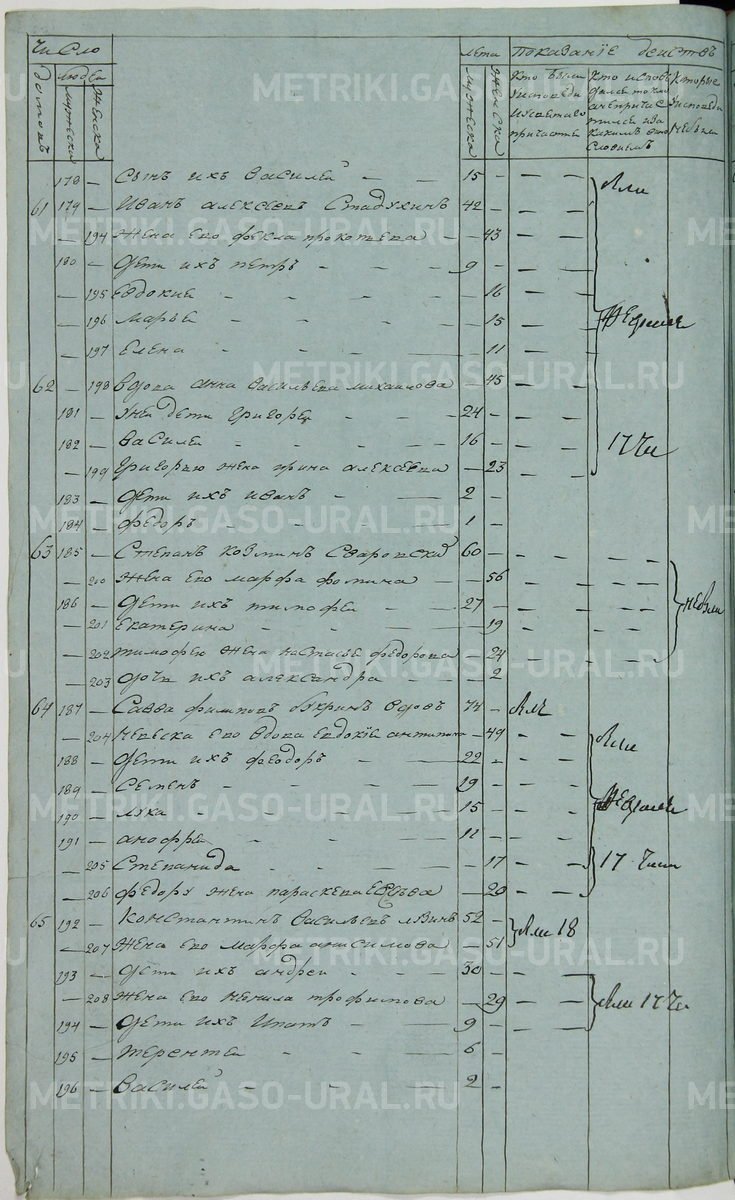 Число
лета
показанїе действъ
домовъ
людей
мужеска
женска
мужеска
женска
кто были
у исповеди
и святаго
причастья
кто исповедался
только
а не причастился
и за
какимъ виновсловиемъ
которые
у исповеди
не были
178 — Сынъ ихъ Василей — — 15 — — —
61 179 — Иванъ Алексеевъ Стадухинъ 42 — — —
— 194 жена его фекла прокопьева — 43 — —
180 — дети ихъ петръ — — — 9 — — —
— 195 Евдокия — — — — 16 — —
— 196 марья — — — — 15 — —
— 197 Елена — — — — 11 — —
62 — 198 вдова анна васильева михаилова — 45 — —
181 — у ней дети григорей — — 24 — — —
182 — василей — — — 16 — — —
— 199 григорью жена ирина алексеева — 23 — —
183 — дети ихъ иванъ — — 2 —
184 — федоръ — — — 1 —
63 185 — Степанъ козминъ 60 — — — —
— 200 жена его марфа фомина — — 56 — — —
186 — дети ихъ тимофей — 27 — — — —
— 201 Екатерина — — — 19 — — —
— 202 тимофею жена настасья федорова — 24 — — —
— 203 дочь ихъ александра — — 2
64 187 — Савва филиповъ вдовъ 74 —
— 204 невеска его вдова Евдокїе антипина — 49 — —
188 — дети ихъ феодоръ — — 22 — — —
189 — Семенъ — — — 19 — — —
190 — лука — — — 15 — — —
191 — анофрей — — — 11 — — —
— 205 Степанида — — — 17 — —
— 206 федору жена параскева — 20 — —
65 192 — Константинъ Васильевъ 52 —
— 207 жена его марфа анисимова — 51
193 — дети ихъ андрей — — — 30 — — —
— 208 жена его ненила трофимова — 29 — —
194 — дети ихъ ипатъ — — — 9 — — —
195 — терентей — — — 6 —
196 — василей — — — 2 —
17 Чи
не были
17 Чи
18
17 Чи
METRIKI.GASO-URAL.RU